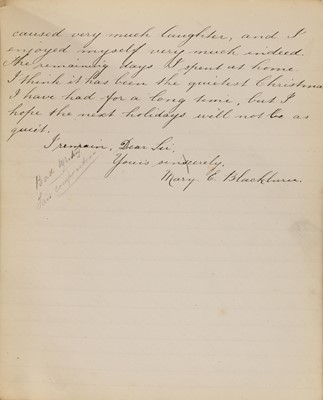 caused very much laughter, and I
enjoyed myself very much indeed.
The remaining days I spent at home.
I think it has been the quietest Christmas
I have had for a long time, but I
hope the next holidays will not be as
quiet.
I remain, Dear Sir,
Yours sincerely,
Mary C. Blackburn.
Bad Writing
Fair composition